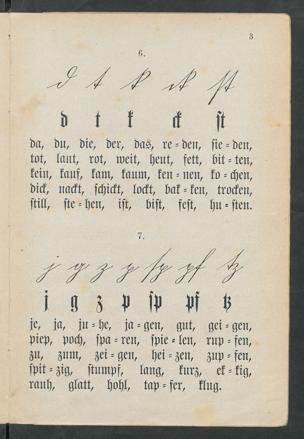 3
6.
d t k ck st
d t k ck st
da, du, die, der, das, re=den, sie=den,
tot, laut, rot, weit, heut, fett, bit=ten,
kein, kauf, kam, kaum, ken=nen, ko=chen,
dick, nackt, schickt, lockt, bak=ken, trocken,
still, ste=hen, ist, bist, fest, hu=sten.
7.
j g z p sp pf tz
j g z p sp pf tz
je, ja, ju=he, ja=gen, gut, gei=gen,
piep, poch, spa=ren, spie=len, rup=fen,
zu, zum, zei=gen, hei=zen, zup=fen,
spit=zig, stumpf, lang, kurz, ek=kig,
rauh, glatt, hohl, tap=fer, klug.